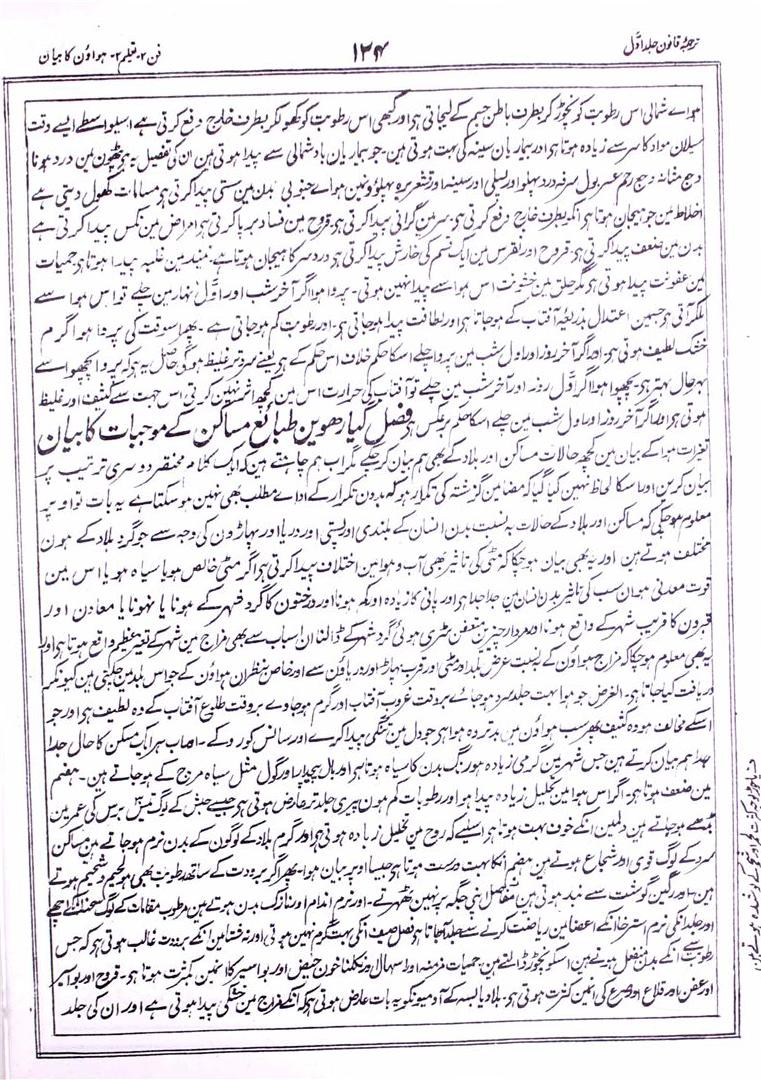 ترجمۂ قانون جلد اوّل
۱۲۴
فن ۲۔ تعلیم ۲۔ ہواؤن کا بیان
ہواے شمالی اس رطوبت کو نچوڑ کر بطرف باطن جسم کے لیجاتی ہی اور کبھی اس رطوبت کو کھولکر بطرف خارج دفع کرتی ہے اسیواسطے ایسے وقت
سیلان مواد کا سر سے زیادہ ہوتا ہی اور بیماریان سینہ کی بہت ہوتی ہین۔ جو بیماریان باد شمالی سے پیدا ہوتی ہین ان کی تفصیل یہ ہی پٹھون مین درد ہونا
وجع مثانہ وجع رحم عسر بول سرفہ درد پہلو اور پسلی اور سینہ اور قشعریرہ ہواے جنوبی بدن مین سستی پیدا کرتی ہی مسامات کھول دیتی ہے
اخلاط مین جو ہیجان ہوتا ہی انکو بطرف خارج دفع کرتی ہی۔ سر مین گرانی پیدا کرتی ہی۔ قروح مین فساد برپا کرتی ہی امراض مین نکس پیدا کرتی ہے
بدن مین ضعف پیدا کرتی ہی۔ قروح اور نقرس مین ایک قسم کی خارش پیدا کرتی ہی درد سر کا ہیجان ہوتا ہے۔ نیند مین غلبہ پیدا ہوتا ہی حمیات
مین عفونت پیدا ہوتی ہی مگر حلق مین خشونت اس ہوا سے پیدا نہین ہوتی۔ پروا ہوا اگر آخر شب اور اوّل نہار مین چلے تو اس ہوا سے
ملکر آتی ہی جسمین اعتدال بذریعۂ آفتاب کے ہو جاتا ہی اور لطافت پیدا ہو جاتی ہی۔ اور رطوبت کم ہو جاتی ہے۔ پھر اسوقت کی پروا ہوا گرم
خشک لطیف ہوتی ہی۔ اور اگر آخر روز اور اول شب مین پروا چلے اسکا حکم خلاف اس حکم کے ہی یعنے سرد تر غلیظ ہوگی حاصل یہ ہی کہ پروا پچھوا سے
بہر حال بہتر ہی۔ پچھوا ہوا اگر اوّل روز اور آخر شب مین چلے تو آفتاب کی حرارت اس مین کچھ اثر نہین کرتی اس جہت سے کثیف اور غلیظ
ہوتی ہی اور اگر آخر روز اور اول شب مین چلے اسکا حکم بر عکس ہی فصل گیارھوین طبائع مساکن کے موجبات کا بیان
تغیرات ہوا کے بیان مین کچھ حالات مساکن اور بلاد کے بھی ہم بیان کر چکے مگر اب ہم چاہتے ہین کہ ایک کلام مختصر دوسری ترتیب پر
بیان کرین اور اسکا لحاظ نہین کیا گیا کہ مضامین گزشتہ کی تکرار ہو کہ بدون تکرار کے اداے مطلب بھی نہین ہو سکتا ہے یہ بات تو اوپر
معلوم ہو چکی کہ مساکن اور بلاد کے حالات بہ نسبت بدن انسان کے بلندی اور پستی اور دریا اور پہاڑون کی وجہ سے جو گرد بلاد کے ہون
مختلف ہوتے ہین اور یہ بھی بیان ہو چکا کہ مٹی کی تاثیر بھی آب و ہوا مین اختلاف پیدا کرتی ہی اگر مٹی خالص ہو یا سیاہ ہو یا اس مین
قوت معدنی ہو ان سب کی تاثیر بدن انسان مین جدا جدا ہی اور پانی کا زیادہ اور کم ہونا اور درختون کا گرد شہر کے ہونا یا نہونا یا معادن اور
قبرون کا قریب شہر کے واقع ہونا اور مردار چیزین متعفن سڑی ہوئی گرد شہر کے ڈالنا ان اسباب سے بھی مزاج مین شہر کے تغیر عظیم واقع ہوتا ہی اور
یہ بھی معلوم ہو چکا کہ مزاج ہواؤن کے بہ نسبت عرض بلد اور مٹی اور قرب پہاڑ اور دریاؤن سے اور خاص نظر ان ہواؤن کے جو اس بلد مین چلتی ہین کیونکر
دریافت کیا جاتا ہی۔ الغرض جو ہوا بہت جلد سرد ہو جاے بر وقت غروب آفتاب اور گرم ہو جاوے بر وقت طلوع آفتاب کے وہ لطیف ہی اور جو
اسکے مخالف ہو وہ کثیف پھر سب ہواؤن مین بدتر وہ ہوا ہی جو دل مین تنگی پیدا کرے اور سانس کو رد کے۔ اب ہر ایک مسکن کا حال جدا
جدا ہم بیان کرتے ہین جس شہر مین گرمی زیادہ ہو رنگ بدن کا سیاہ ہوتا ہی اور بال پیچیدہ اور گول مثل سیاہ مرچ کے ہو جاتے ہین۔ ہضم
مین ضعف ہوتا ہی۔ اگر اس ہوا مین تحلیل زیادہ پیدا ہو اور رطوبات کم ہون پیری جلد تر عارض ہوتی ہی جیسے حبش کے لوگ تیس برس کی عمر مین
بڈھے ہو جاتے ہین دلمین انکے خوف بہت ہوتا ہی اسلیے کہ روح مین تحلیل زیادہ ہوتی ہی اور گرم بلاد کے لوگون کے بدن نرم ہو جاتے ہین مساکن
سرد کے لوگ قوی اور شجاع ہوتے ہین ہضم انکا بہت درست ہوتا ہی جیسا اوپر بیان ہوا۔ پھر اگر برودت کے ساتھ رطوبت بھی ہو لحیم و شحیم ہوتے
ہین اور رگین گوشت سے نمودار نہین ہوتی ہین مفاصل اپنی جگہ پر نہین ٹھہرتے۔ اور نرم اندام اور نازک بدن ہوتے ہین مرطوب مقامات کے لوگ
اور جلد انکی نرم استرخا انکے اعضا مین ریاضت کرنے سے جلد آجاتا ہی فصل صیف انکی بہت گرم نہین ہوتی اور نہ شتا مین انکے برودت غالب ہوتی ہی کہ جس
رطوبت سے انکے بدن منفعل ہوتے ہین اسکو نچوڑ ڈالتے ہین حمیات مزمنہ اور اسہال اور نکلنا خون حیض اور بواسیر کا انمین بکثرت ہوتا ہی۔ قروح اور بواسیر
اور عفن اور قلاع اور صرع کی انمین کثرت ہوتی ہی۔ بلاد یابسہ کے آدمیونکو یہ بات عارض ہوتی ہی کہ انکے مزاج مین خشکی پیدا ہوتی ہے اور ان کی جلد